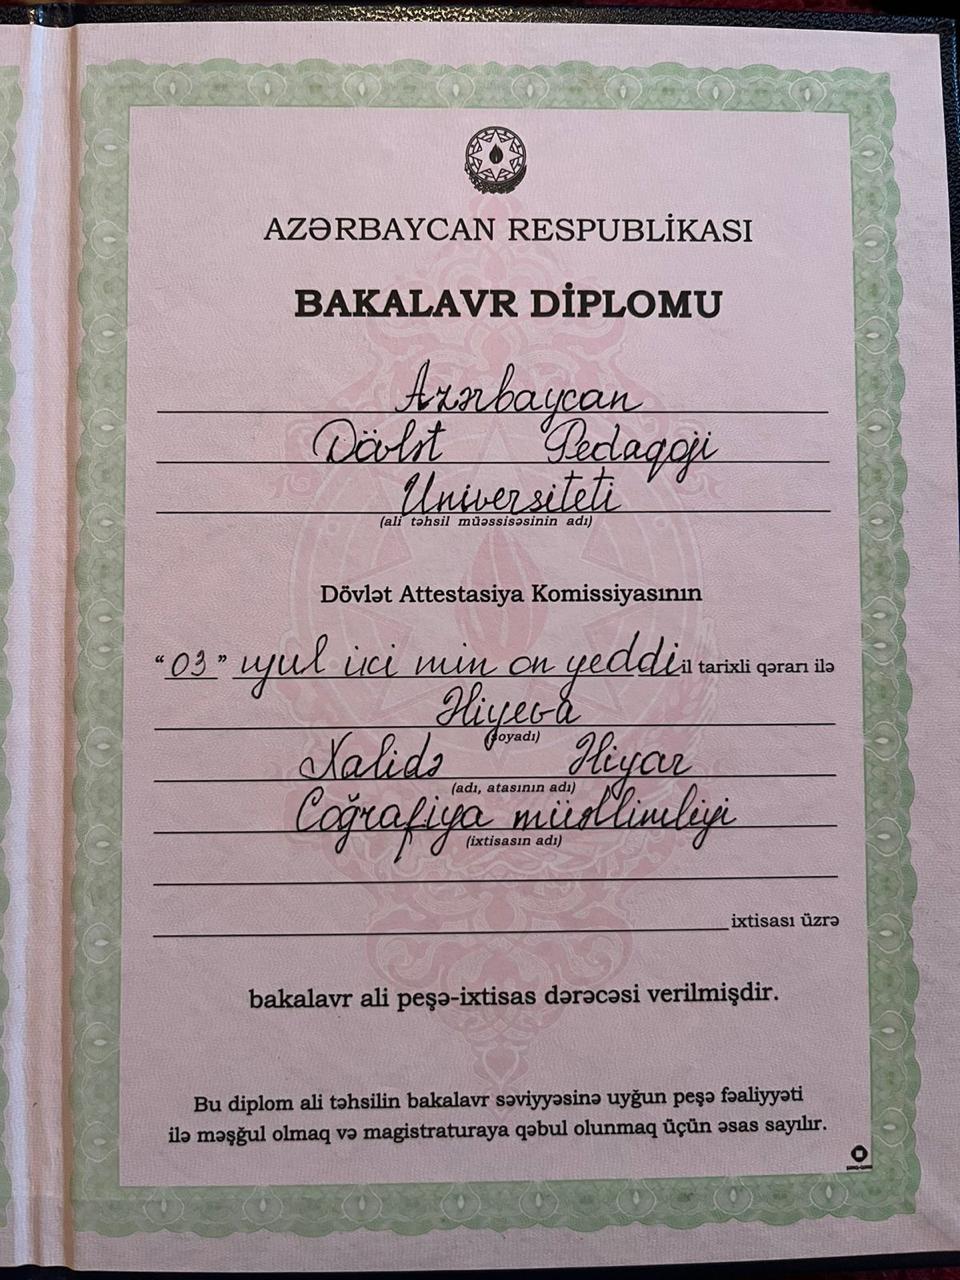 AZƏRBAYCAN RESPUBLİKASI
BAKALAVR DİPLOMU
Azərbaycan
Dövlət Pedaqoji
Universiteti
(ali təhsil müəssisəsinin adı)
Dövlət Attestasiya Komissiyasının
“03” iyul iki min on yeddi il tarixli qərarı ilə
Əliyeva
(soyadı)
Xalidə Əliyar
(adı, atasının adı)
Coğrafiya müəllimliyi
(ixtisasın adı)
ixtisası üzrə
bakalavr ali peşə-ixtisas dərəcəsi verilmişdir.
Bu diplom ali təhsilin bakalavr səviyyəsinə uyğun peşə fəaliyyəti
ilə məşğul olmaq və magistraturaya qəbul olunmaq üçün əsas sayılır.